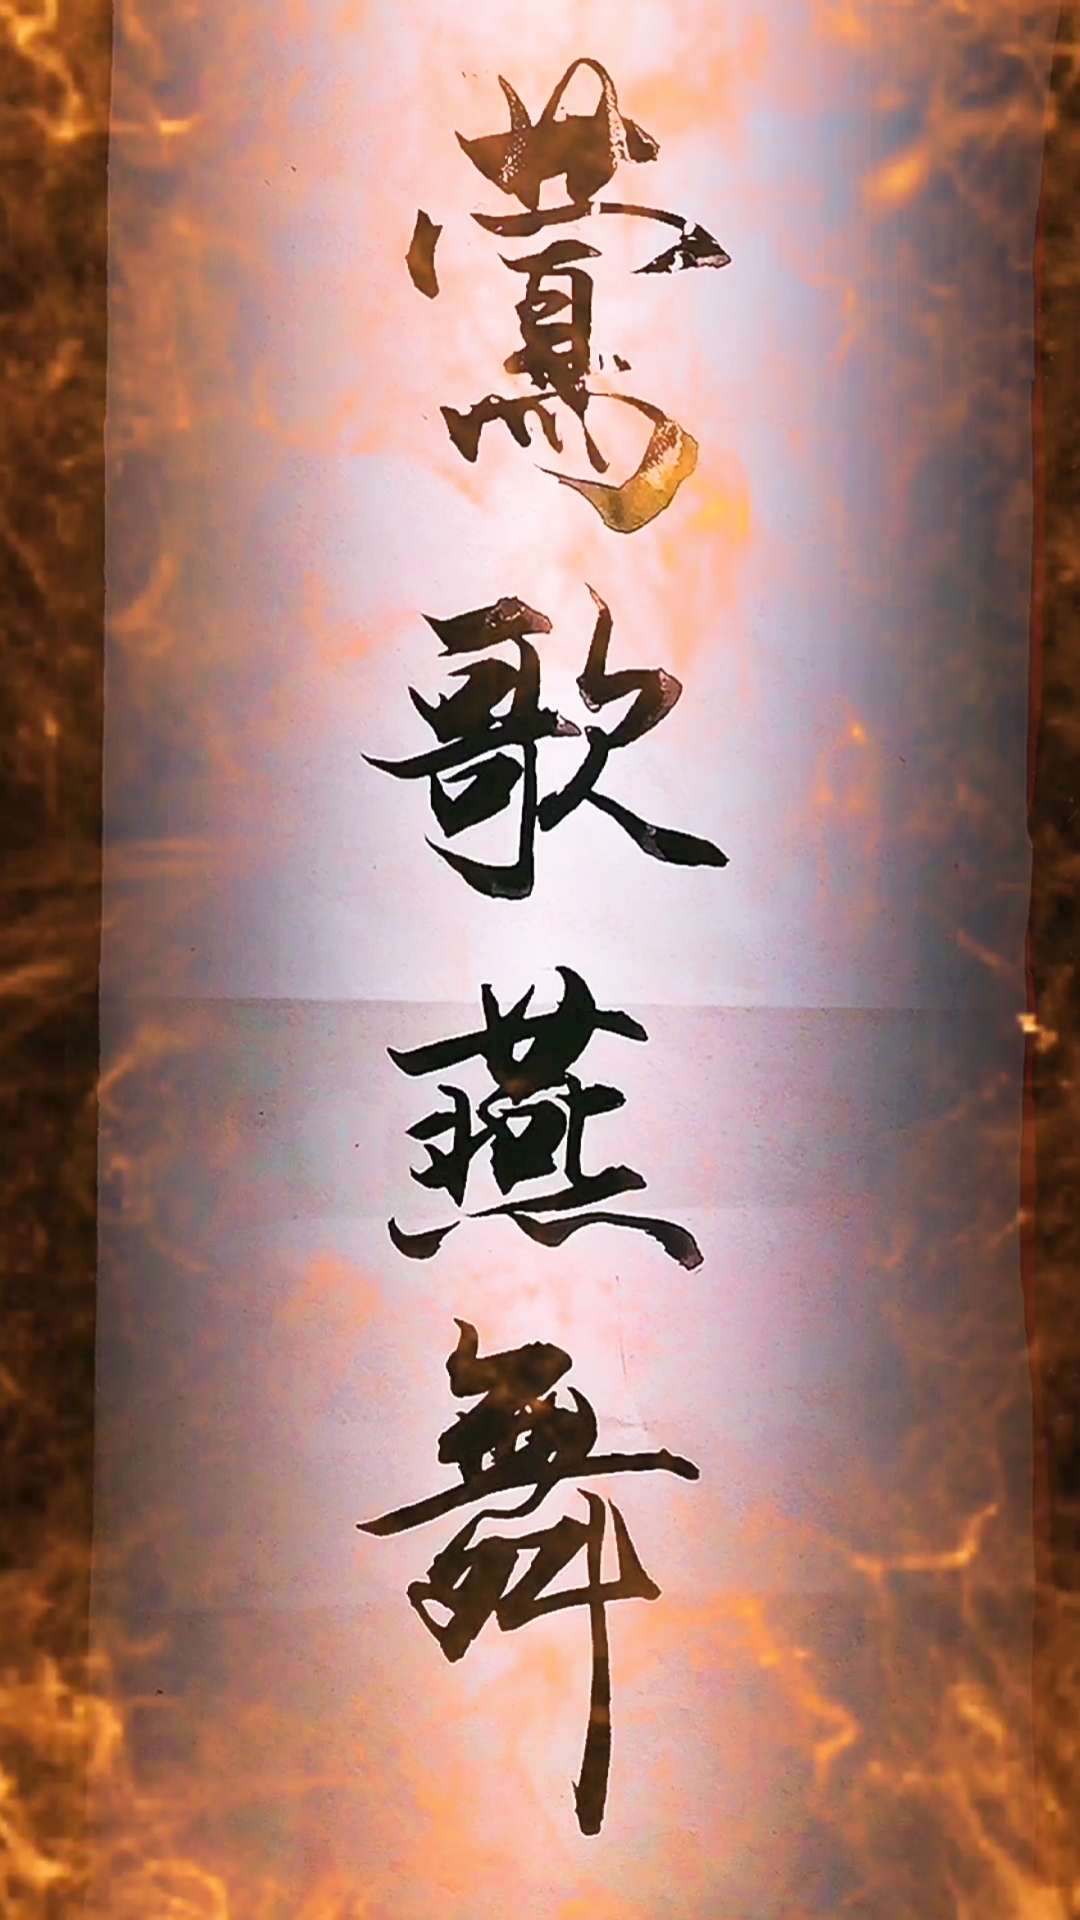 鶯歌燕舞